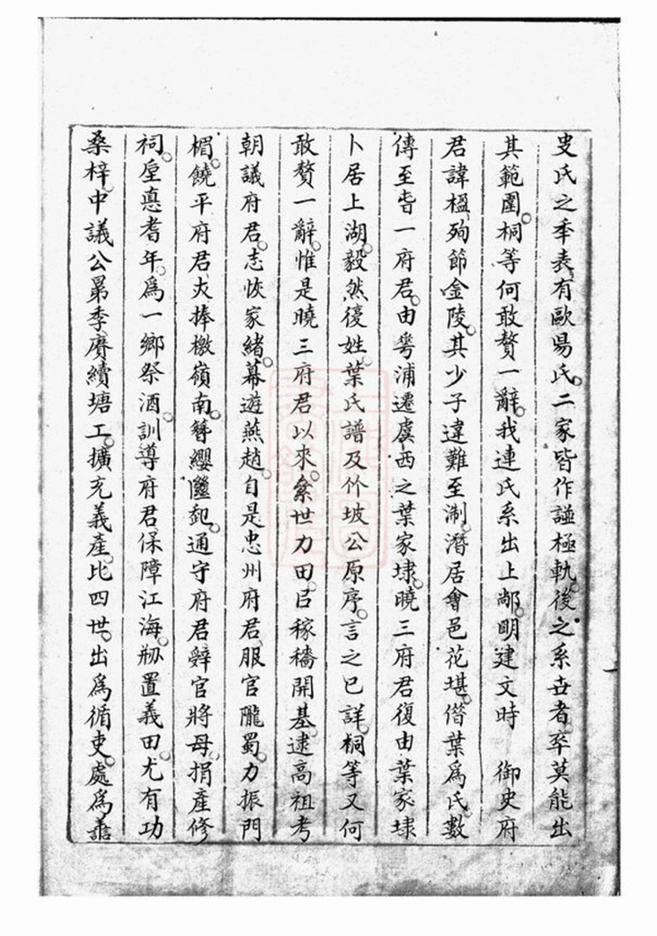 史氏之年表有歐昜氏二家皆作譜極軌後之系世者卒莫能出
其範圍桐等何敢贅一辭我連氏系出上鄅明建文時　御史府
君諱楹殉節金陵其少子違難至淛潛居會邑花堪偕葉爲氏數
傳至旹一府君由雩浦遷虞西之葉家埭曉三府君復由葉家埭
卜居上湖毅然復姓葉氏譜及竹坡公原序言之已詳桐等又何
敢贅一辭惟是曉三府君以來絫世力田㠯稼穡開基逮高祖考
朝議府君志恢家緒幕遊燕趙自是忠州府君服官隴蜀力振門
楣饒平府君又捧檄嶺南簪纓繼起通守府君辤官將母捐產修
祠垕惪耆年爲一鄉祭酒訓導府君保障江海剏置義田尤有功
桑梓中議公苐季賡續塘工擴充義產比四世出爲循吏處爲譱